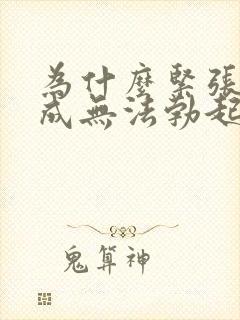 為什麼緊張
成無法勃起
鬼算神